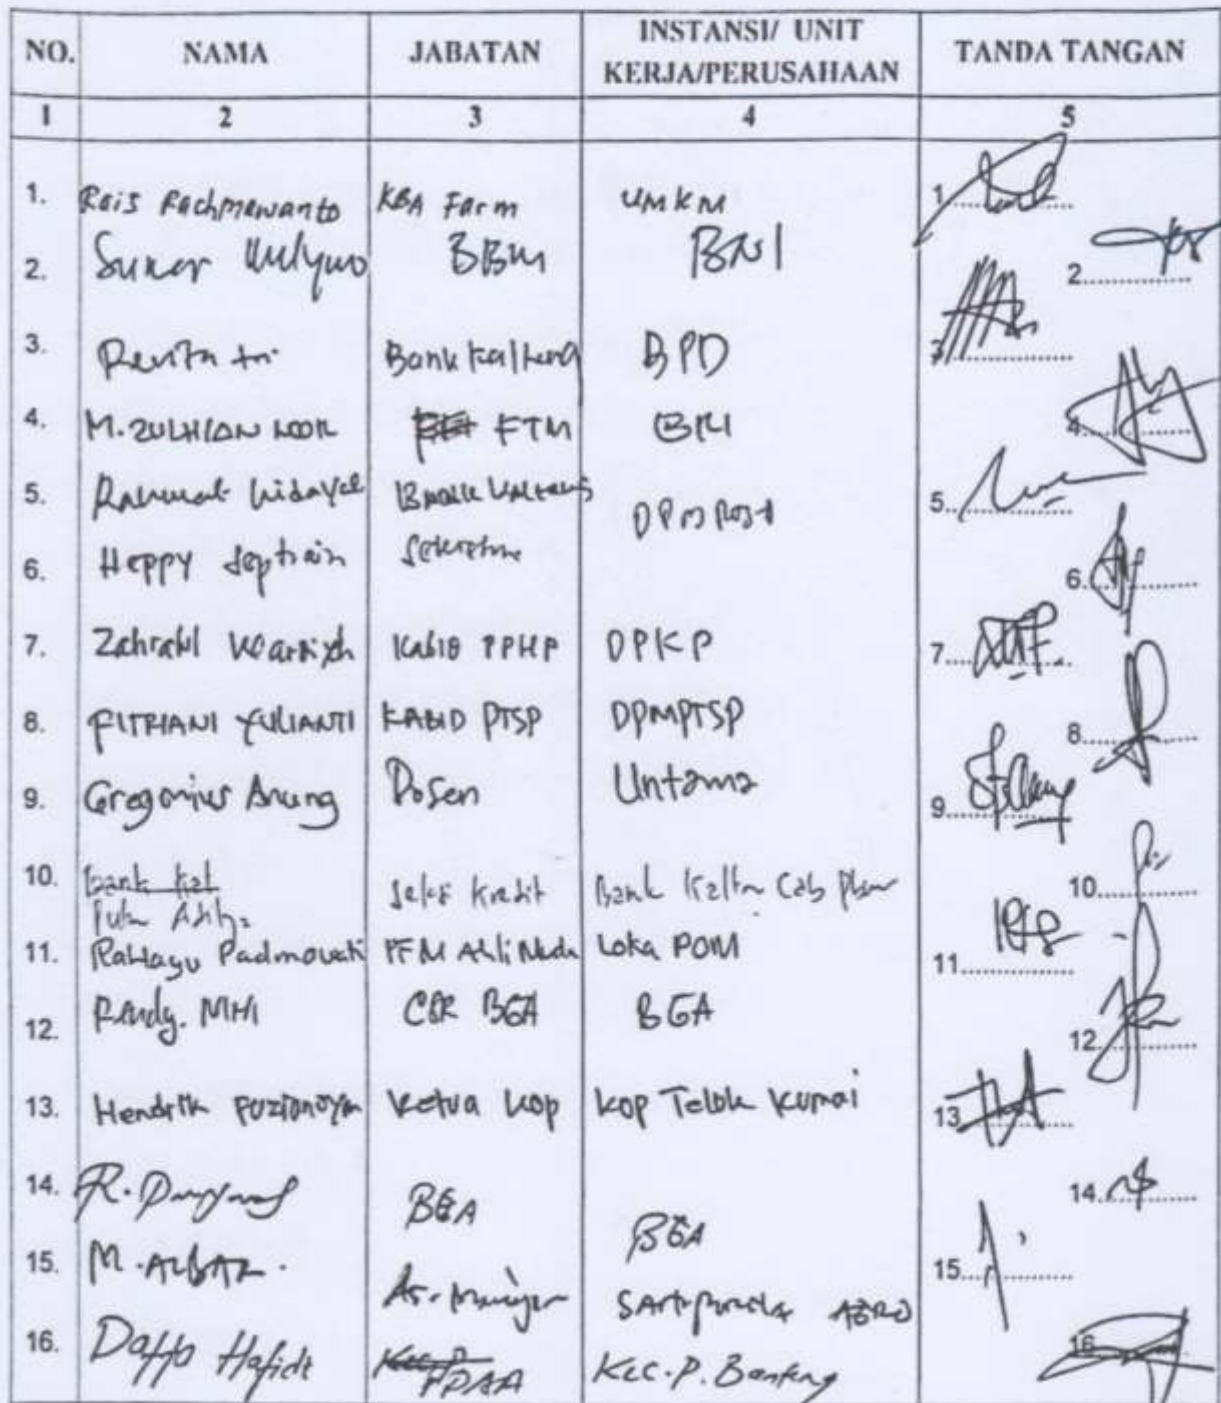 NO. NAMA JABATAN INSTANSI/ UNIT KERJA/PERUSAHAAN TANDA TANGAN
1 2 3 4 5
1. Rais Rachmawanto KBA Farm UMKM 1
2. Sunar Mulyono BBM BNI 2
3. Revita tri Bank Kalteng BPD 3
4. M. ZULHIAN NOOR FTM BRI 4
5. Rahmat hidayat Bank Kalteng 5
6. Heppy Septiain Sekretaris 6
7. Zahratul Wardiyah Kabid PPHP DPKP 7
8. FITRIANI YULIANTI KABID PTSP DPMPTSP 8
9. Gregorius Anung Dosen Untama 9
10. Bank Kal Putu Kredit Bank Kalten Cab 10
11. Rahayu Padmovati PFM Ahli Muda Loka POM 11
12. Rendy. MHI CSR BGA BGA 12
13. Hendrik Ketua Kop Kop Telok Kumai 13
14. R. BGA BGA 14
15. M. ALBAR. As. 15
16. Daffa Hafidz FDAA Kec. P. Banteng 16